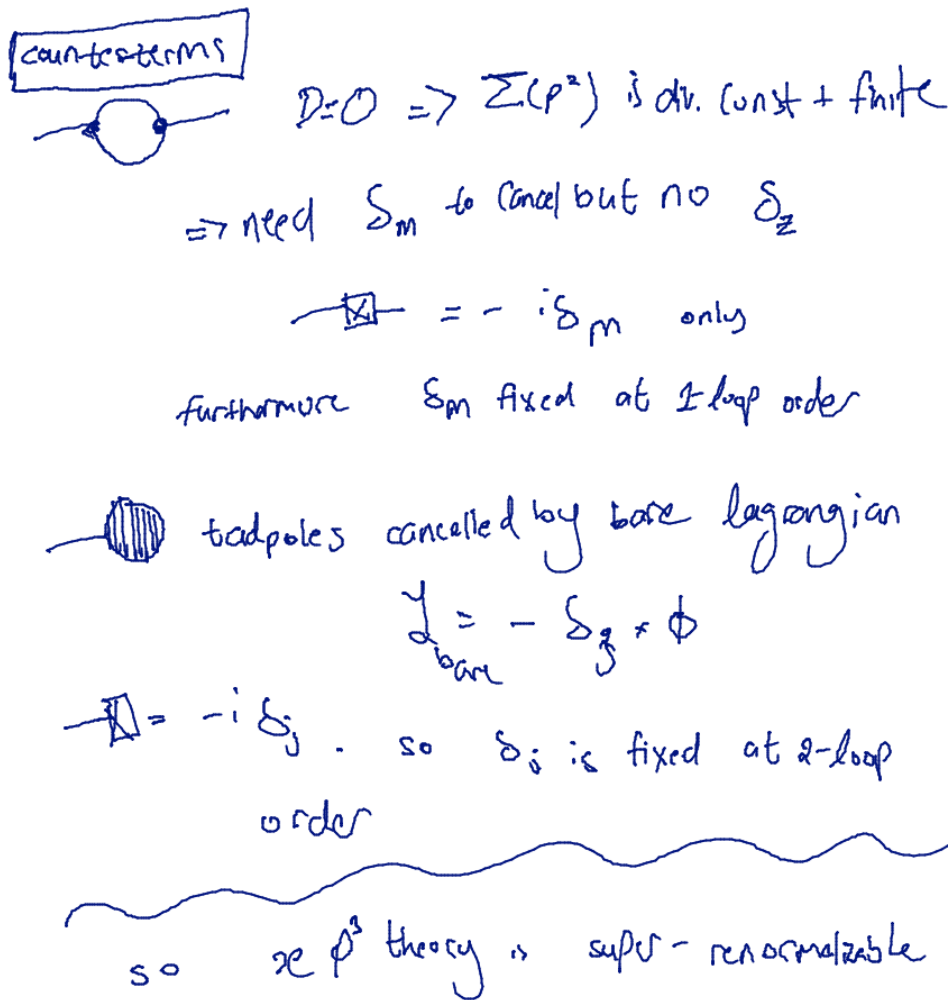 counterterms
D=0 => Σ(p²) is div. const + finite
=> need δ_m to cancel but no δ_z
= - iδ_m only
furthermore δ_m fixed at 1-loop order
tadpoles cancelled by bare lagrangian
ℒ_bare = - δ_j * ϕ
= -i δ_j . so δ_j is fixed at 2-loop
order
so ϰ ϕ³ theory is super-renormalizable